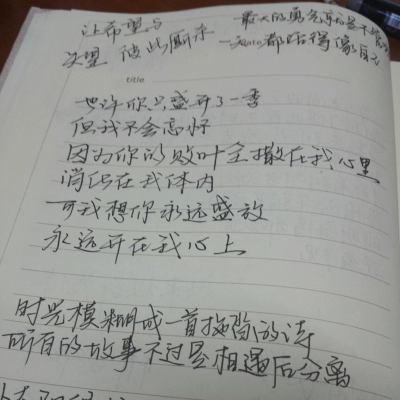 让希望与
失望 彼此厮杀
最大的勇气
一天都活得像自己
title
也许你只盛开了一季
但我不会忘怀
因为你的败叶全撒在我心里
消化在我体内
可我想你永远盛放
永远开在我心上
时光模糊成一首拖沓的诗
所有的故事不过是相遇后分离